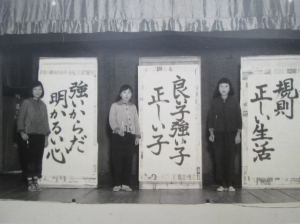 規則
正しい生活
良い子強い子
正しい子
強いからだ
明かるい心